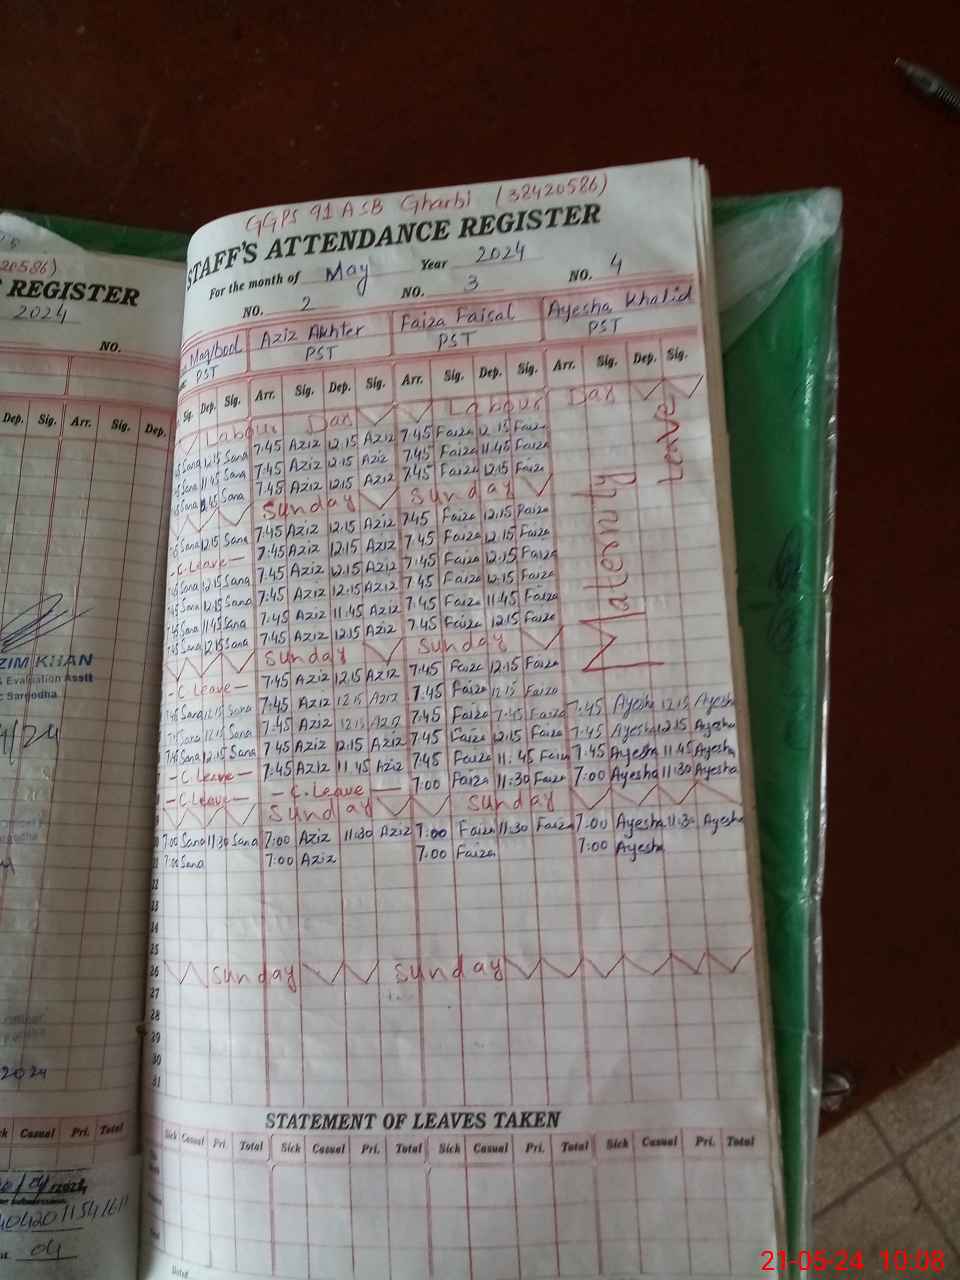 20586)
REGISTER
2024
NO.
Dep. Sig. Arr. Sig. Dep.
ZIM KHAN
& Evaluation Asstt
Sargodha
4/24
2024
Casual Pri. Total
04
GGPS 91 ASB Gharbi (38420586)
STAFF'S ATTENDANCE REGISTER
For the month of May Year 2024
NO. 2 NO. 3 NO. 4
Aziz Akhter Faiza Faisal Ayesha Khalid
PST PST PST PST
Sig. Dep. Sig. Arr. Sig. Dep. Sig. Arr. Sig. Dep. Sig. Arr. Sig. Dep. Sig.
Labour Day Labour Day
Sana 12:15 Sana 7:45 Aziz 12:15 Aziz 7:45 Faiza 12:15 Faiza
Sana 11:45 Sana 7:45 Aziz 12:15 Aziz 7:45 Faiza 11:45 Faiza
Sana Sana 7:45 Aziz 12:15 Aziz 7:45 Faiza 12:15 Faiza
Sunday Sunday
Sana 12:15 Sana 7:45 Aziz 12:15 Aziz 7:45 Faiza 12:15 Faiza
- C. Leave - 7:45 Aziz 12:15 Aziz 7:45 Faiza 12:15 Faiza
Sana 12:15 Sana 7:45 Aziz 12:15 Aziz 7:45 Faiza 12:15 Faiza
Sana 12:15 Sana 7:45 Aziz 12:15 Aziz 7:45 Faiza 12:15 Faiza
Sana 11:45 Sana 7:45 Aziz 11:45 Aziz 7:45 Faiza 11:45 Faiza
Sana 12:15 Sana 7:45 Aziz 12:15 Aziz 7:45 Faiza 12:15 Faiza
Maternity Leave
Sunday Sunday
- C Leave - 7:45 Aziz 12:15 Aziz 7:45 Faiza 12:15 Faiza
7:45 Sana 12:15 Sana 7:45 Aziz 12:15 Aziz 7:45 Faiza 12:15 Faiza
7:45 Sana 12:15 Sana 7:45 Aziz 12:15 Aziz 7:45 Faiza 7:45 Faiza 7:45 Ayesha 12:15 Ayesha
7:45 Sana 12:15 Sana 7:45 Aziz 12:15 Aziz 7:45 Faiza 12:15 Faiza 7:45 Ayesha 12:15 Ayesha
- C Leave - 7:45 Aziz 11:45 Aziz 7:45 Faiza 11:45 Faiza 7:45 Ayesha 11:45 Ayesha
- C Leave - - C. Leave - 7:00 Faiza 11:30 Faiza 7:00 Ayesha 11:30 Ayesha
Sunday Sunday
7:00 Sana 11:30 Sana 7:00 Aziz 11:30 Aziz 7:00 Faiza 11:30 Faiza 7:00 Ayesha 11:30 Ayesha
7:00 Sana 7:00 Aziz 7:00 Faiza 7:00 Ayesha
22
23
24
25
26 Sunday Sunday
27
28
29
30
31
STATEMENT OF LEAVES TAKEN
Sick Casual Pri. Total Sick Casual Pri. Total Sick Casual Pri. Total Sick Casual Pri. Total
21-05-24 10:08